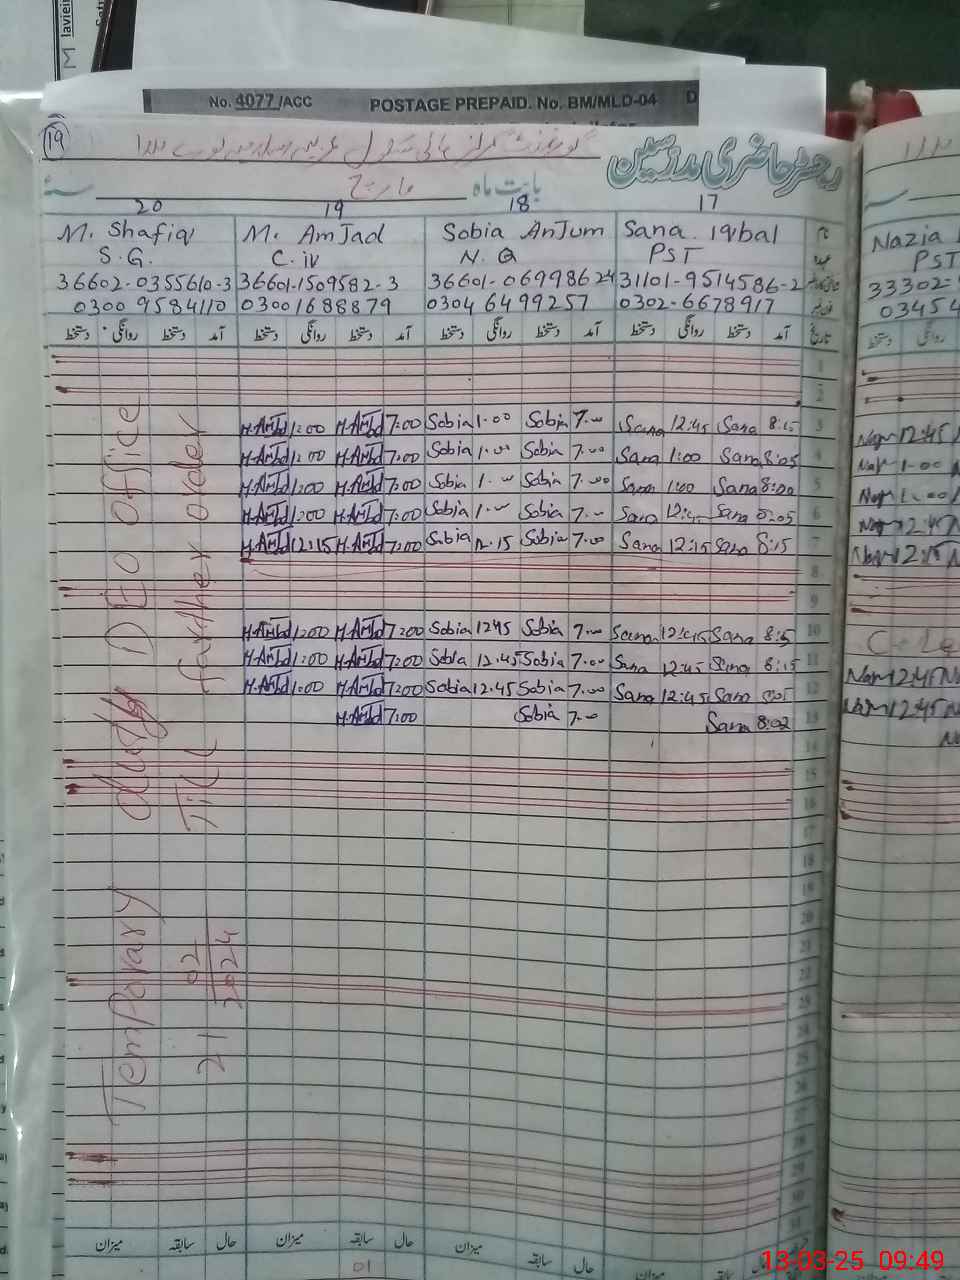 No. 4077/ACC POSTAGE PREPAID. No. BM/MLD-04 D
19
رجسٹر حاضری مدرسین
بابت ماہ مارچ سنہ
20 19 18 17
M. Shafiq M. AmJad Sobia AnJum Sana Iqbal نام
S.G. C.iv N.Q PST عہدہ
36602-0355610-3 36601-1509582-3 36601-06998624 31101-9514586-2
0300 9584110 03001688879 0304 6499257 0302-6678917
دستخط روانگی دستخط آمد دستخط روانگی دستخط آمد دستخط روانگی دستخط آمد دستخط روانگی دستخط آمد تاریخ
1
2
M.AmJd 1:00 M.AmJd 7:00 Sobia 1.00 Sobia 7.00 Sana 12:45 Sana 8:15 3
M.AmJd 1:00 M.AmJd 7:00 Sobia 1.00 Sobia 7.00 Sana 1:00 Sana 8:05 4
M.AmJd 1:00 M.AmJd 7:00 Sobia 1.00 Sobia 7.00 Sana 1:00 Sana 8:00 5
M.AmJd 1:00 M.AmJd 7:00 Sobia 1.00 Sobia 7.00 Sana Sana 8:05 6
M.AmJd 12:15 M.AmJd 7:00 Sobia 12.15 Sobia 7.00 Sana 12:15 Sana 8:15 7
8
9
M.AmJd 1:00 M.AmJd 7:00 Sobia 1245 Sobia 7.00 Sana 12:45 Sana 10
M.AmJd 1:00 M.AmJd 7:00 Sobia 12.45 Sobia 7.00 Sana 12:45 Sana 8:15 11
M.AmJd 1:00 M.AmJd 7:00 Sobia 12.45 Sobia 7.00 Sana 12:45 Sana 12
M.AmJd 7:00 Sobia 7.00 Sana 8:02 13
14
15
16
17
18
19
20
21
22
23
24
25
26
27
28
29
30
31
Temporary duty DEO office
21 02 2024 Till farther order
میزان سابقہ حال میزان سابقہ حال میزان سابقہ حال میزان حال
01
Nazia
PST
33302-
03454
دستخط روانگی
12:45
1.00
1.00
12:45
12:15
12:45
12:45
13-03-25 09:49